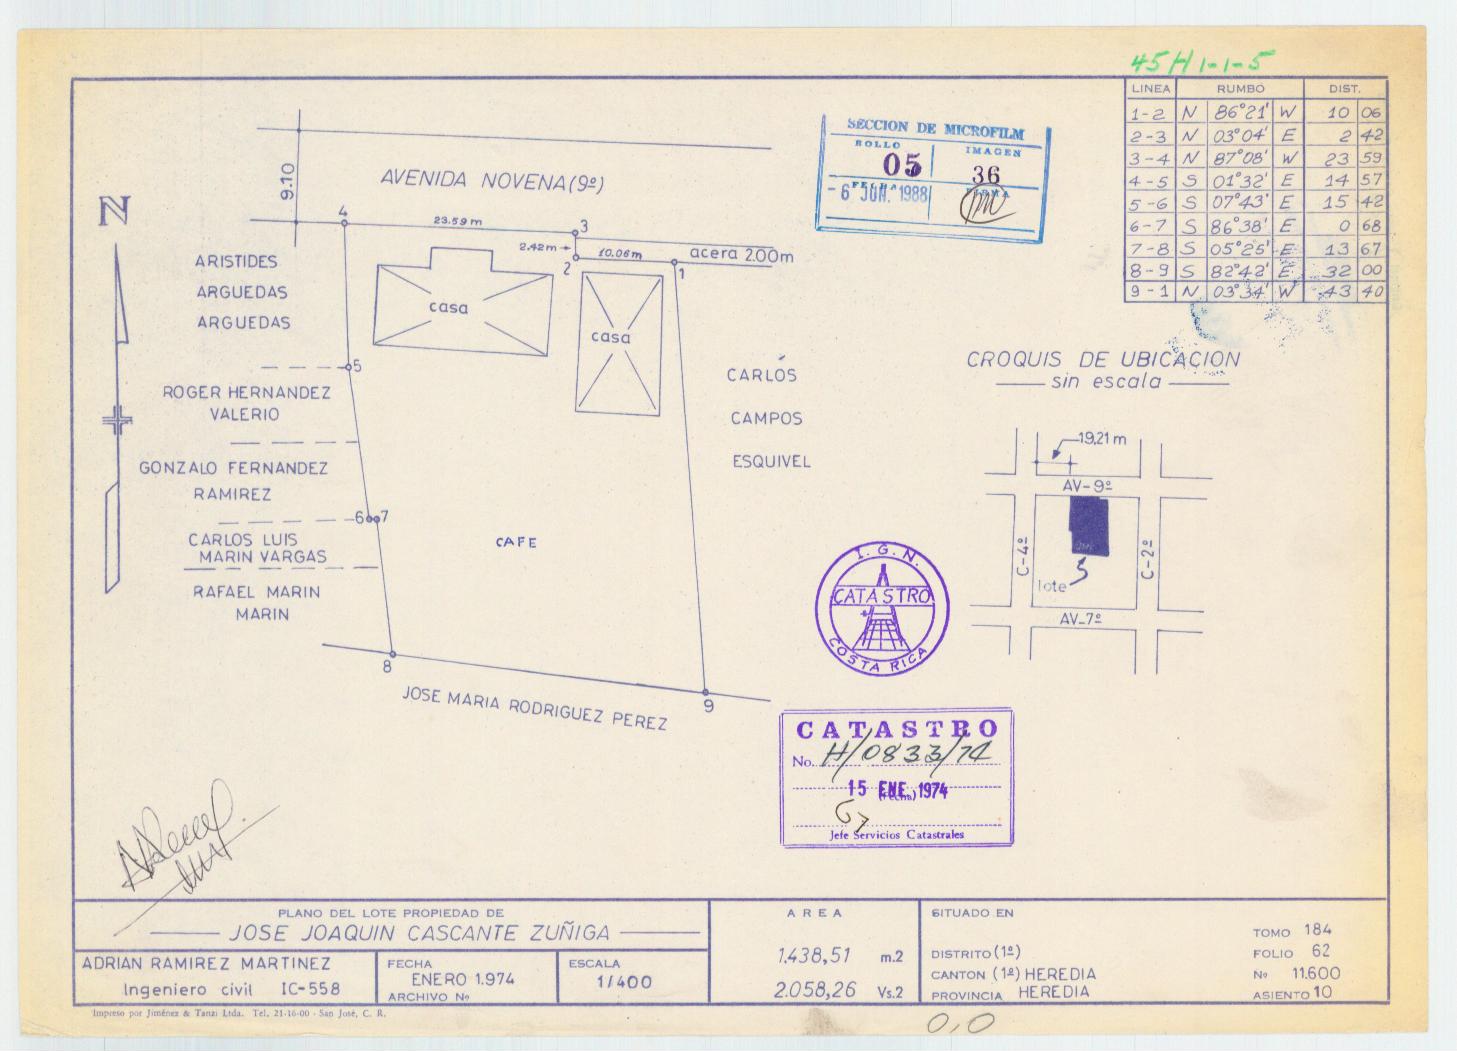 45H 1-1-5
LINEA RUMBO DIST.
1-2 N 86°21' W 10 06
2-3 N 03°04' E 2 42
3-4 N 87°08' W 23 59
4-5 S 01°32' E 14 57
5-6 S 07°43' E 15 42
6-7 S 86°38' E 0 68
7-8 S 05°25' E 13 67
8-9 S 82°42' E 32 00
9-1 N 03°34' W 43 40
SECCION DE MICROFILM
ROLLO IMAGEN
05 36
FECHA FIRMA
-6 JUN. 1988
9.10
AVENIDA NOVENA (9ª)
N
4
23.59 m
3
2.42m
2
10.06m
1
acera 2.00m
ARISTIDES
ARGUEDAS
ARGUEDAS
casa
casa
5
ROGER HERNANDEZ
VALERIO
GONZALO FERNANDEZ
RAMIREZ
6 7
CARLOS LUIS
MARIN VARGAS
RAFAEL MARIN
MARIN
CAFE
CARLOS
CAMPOS
ESQUIVEL
8
9
JOSE MARIA RODRIGUEZ PEREZ
CROQUIS DE UBICACION
sin escala
19,21 m
AV-9ª
C-4ª
C-2ª
lote
AV-7ª
I. G. N.
CATASTRO
COSTA RICA
CATASTRO
No. H/0833/74
15 ENE. 1974
(Fecha)
Jefe Servicios Catastrales
PLANO DEL LOTE PROPIEDAD DE
JOSE JOAQUIN CASCANTE ZUÑIGA
ADRIAN RAMIREZ MARTINEZ
Ingeniero civil IC-558
FECHA
ENERO 1.974
ARCHIVO Nº
ESCALA
1/400
AREA
1.438,51 m.2
2.058,26 Vs.2
SITUADO EN
DISTRITO (1º)
CANTON (1º) HEREDIA
PROVINCIA HEREDIA
TOMO 184
FOLIO 62
Nº 11.600
ASIENTO 10
Impreso por Jiménez & Tanzi Ltda. Tel. 21-16-00 - San José, C. R.
0,0